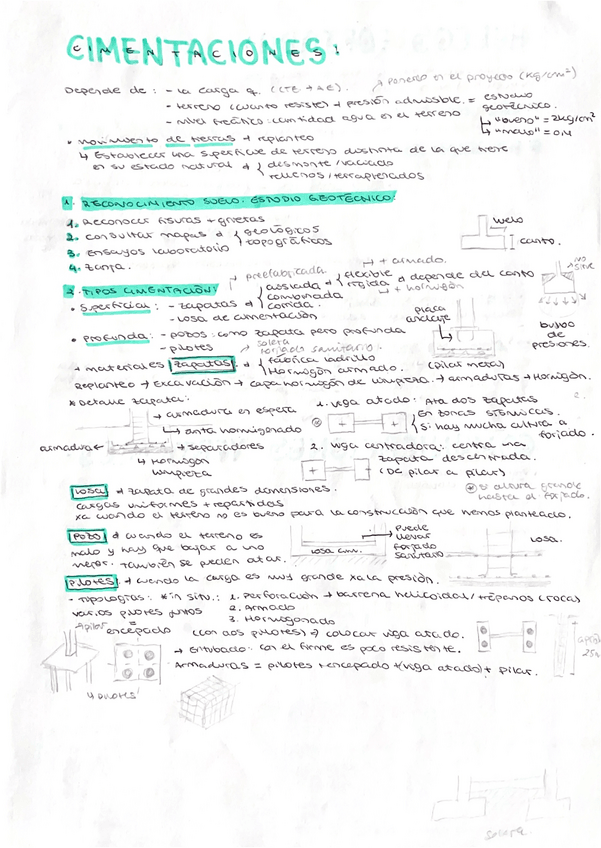 CIMENTACIONES!
Depende de: - la carga q. (CTE → AE). ponerlo en el proyecto (kg/cm²)
- terreno (cuanto resiste) → presión admisible. = estudio geotécnico.
- nivel freático: cantidad agua en el terreno
↳ "bueno" = 2kg/cm²
↳ "malo" = 0,4
• movimiento de tierras → replanteo
↳ Establecer una superficie de terreno distinta de la que tiene
en su estado natural → desmonte / vaciado
rellenos / terraplenados
1. RECONOCIMIENTO SUELO. ESTUDIO GEOTÉCNICO:
1. Reconocer fisuras + grietas
2. consultar mapas → geológicos
topográficos
3. Ensayos laboratorio
4. zanja.
vuelo
canto.
2. TIPOS CIMENTACIÓN:
prefabricada
→ + armado.
• Superficial: - zapatas → aislada
combinada
corrida.
flexible
rígida → depende del canto
↳ + hormigón
- Losa de cimentación
NO SIRVE
bulbo de presiones.
• Profunda: - pozos: como zapata pero profunda
- pilotes
placa anclaje
(pilar metal)
solera
forjado sanitario.
→ materiales zapatas: → fábrica ladrillo
Hormigón armado.
Replanteo → excavación → capa hormigón de limpieza. → armaduras → Hormigón.
* Detalle zapata:
→ armadura en espera
↳ junta hormigonado
armadura ←
→ separadores
↳ Hormigón limpieza
1. viga atado: Ata dos zapatas
en zonas sísmicas.
si hay mucha altura a forjado.
2. viga centradora: centra una
zapata descentrada.
(De pilar a pilar)
si altura grande hasta el forjado.
Losa → zapata de grandes dimensiones.
cargas uniformes + repartidas
xa cuando el terreno no es bueno para la construcción que hemos planteado.
Pozo → cuando el terreno es
malo y hay que bajar a uno
mejor. También se pueden atar.
losa cim.
Puede llevar forjado sanitario
losa.
Pilotes → cuando la carga es muy grande xa la presión.
- Tipologías: * in situ: 1. Perforación → barrena helicoidal / trépanos (roca)
2. Armado
3. Hormigonado
varios pilotes juntos
=
encepado (con dos pilotes) → colocar viga atado.
→ Entubado: con el firme es poco resistente.
Armaduras = pilotes + encepado + (viga atado) + pilar.
4 pilotes
solera.